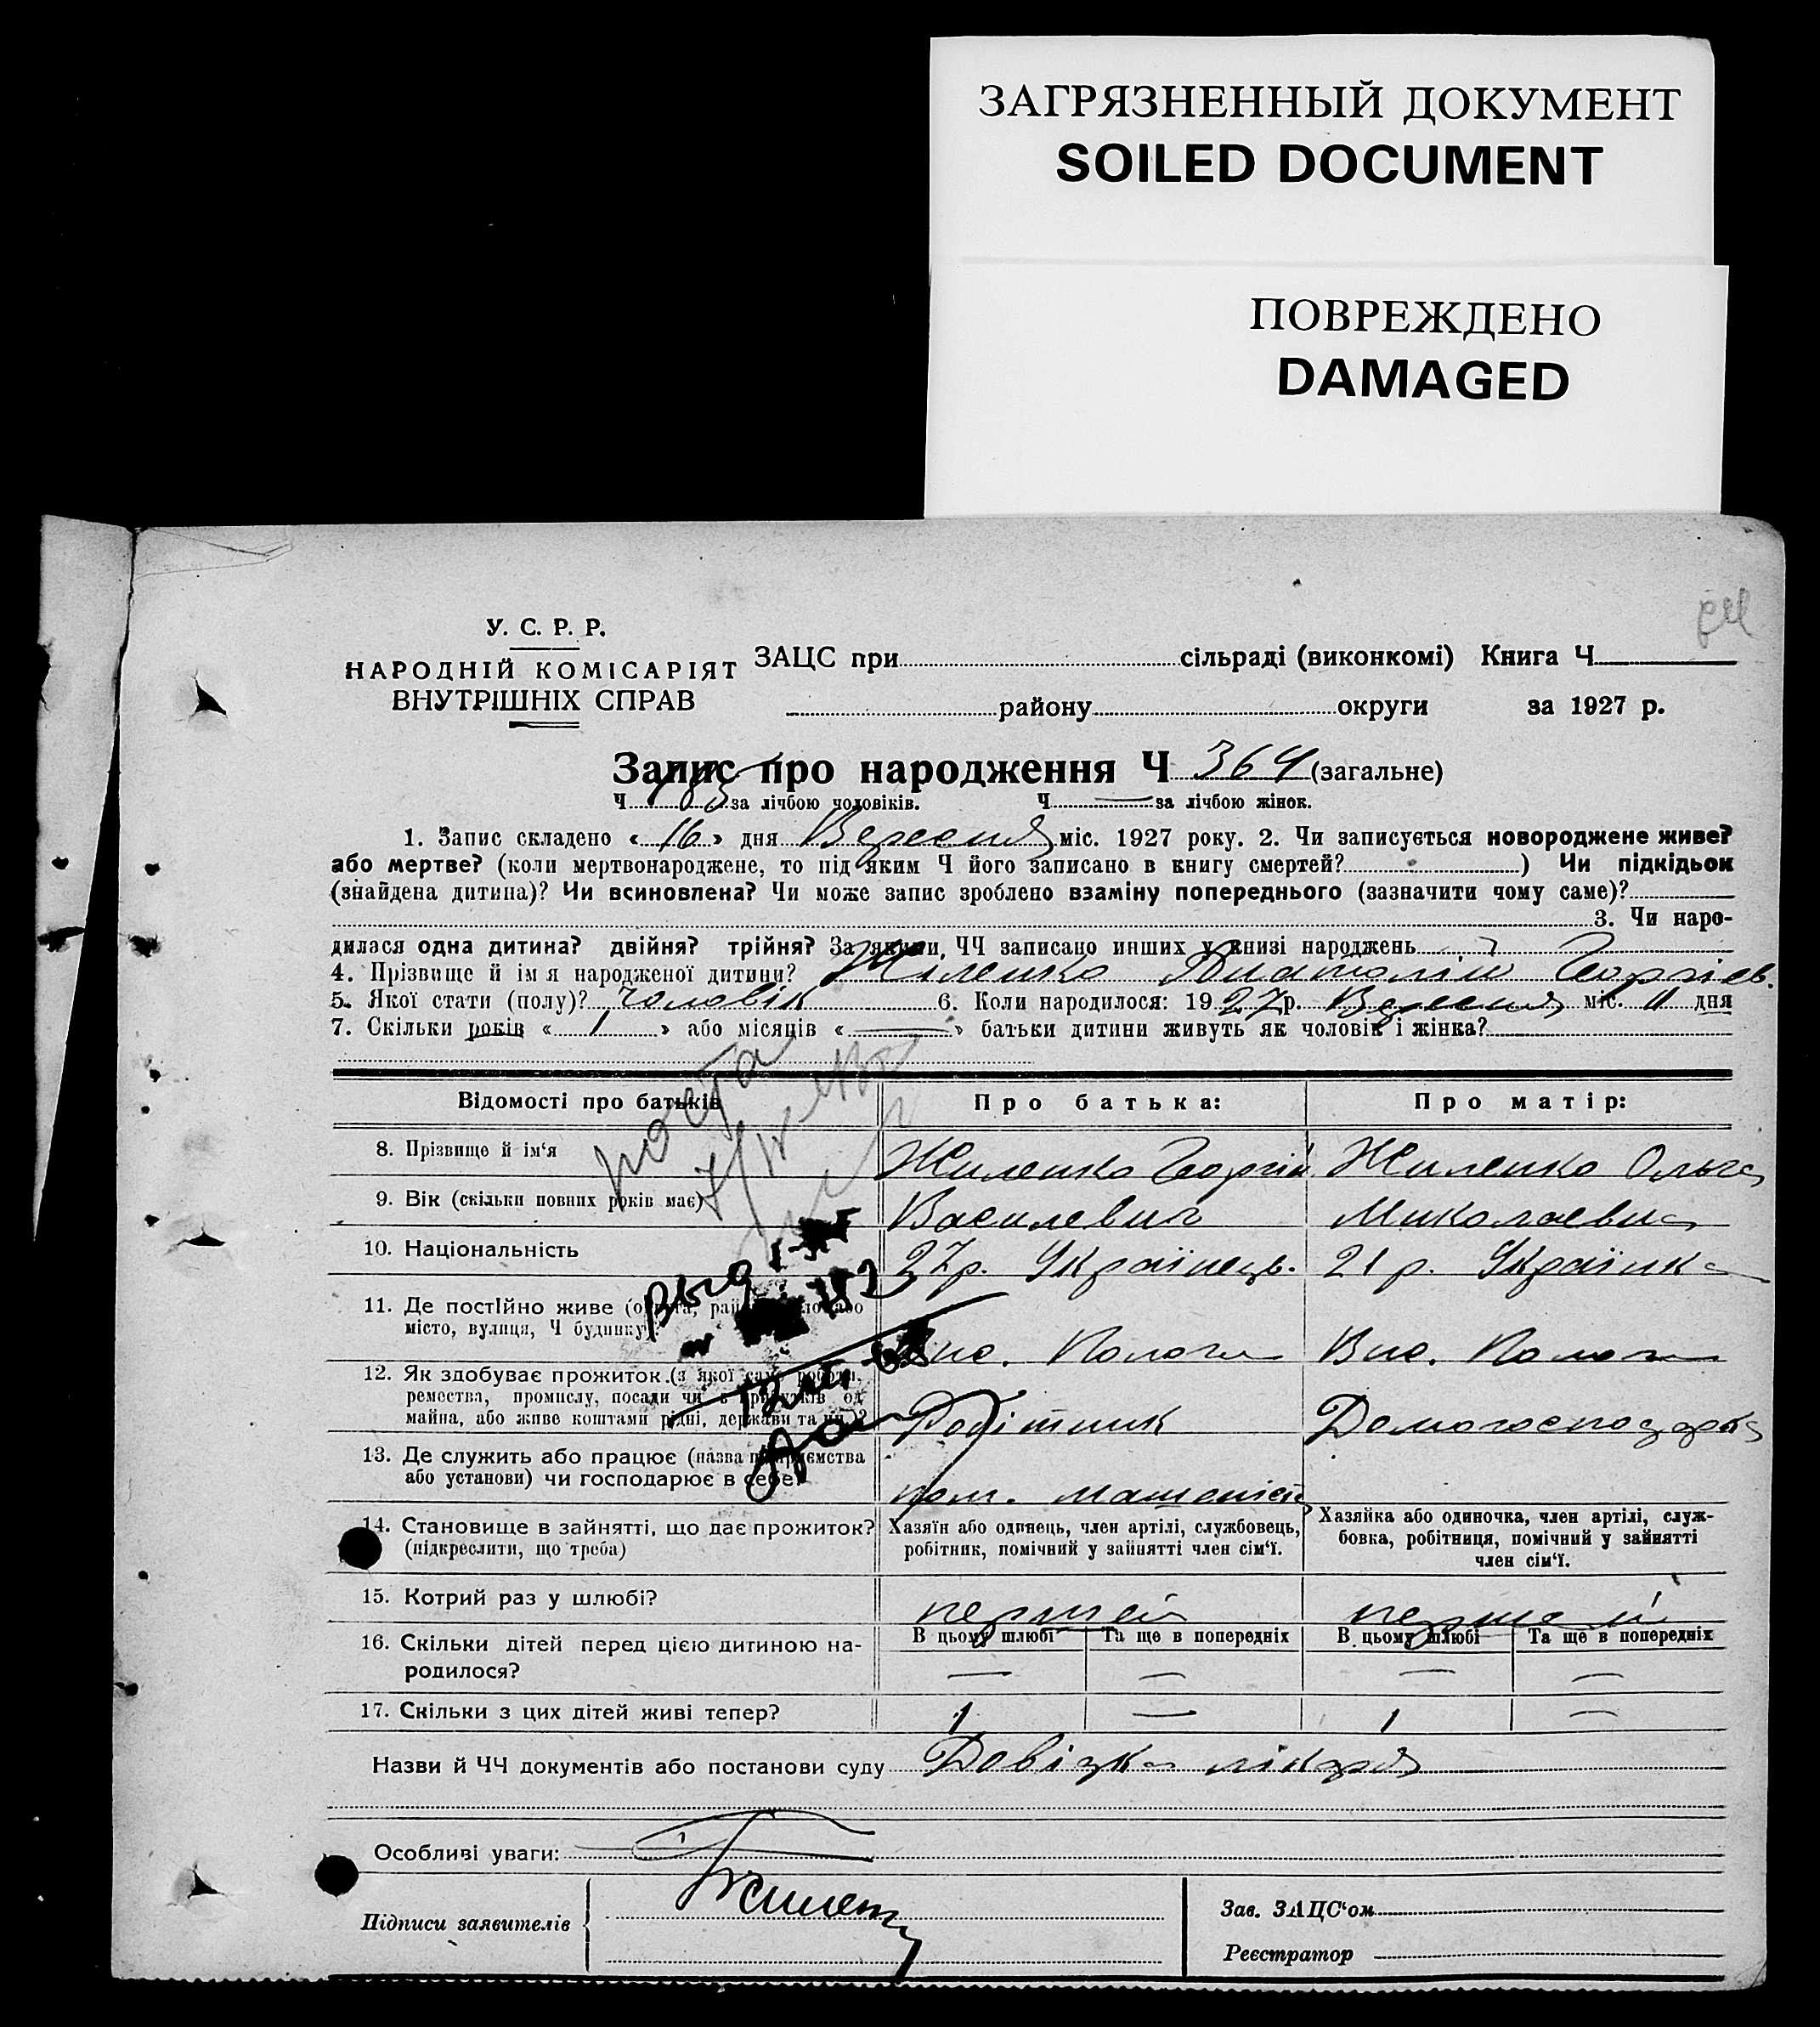 ЗАГРЯЗНЕННЫЙ ДОКУМЕНТ
SOILED DOCUMENT
ПОВРЕЖДЕНО
DAMAGED
У. С. Р. Р.
НАРОДНІЙ КОМІСАРІЯТ
ВНУТРІШНІХ СПРАВ
ЗАЦС при сільраді (виконкомі) Книга Ч.
району округи за 1927 р.
Запис про народження Ч 364 (загальне)
Ч. 183 за лічбою чоловіків. Ч. — за лічбою жінок.
1. Запис складено « 16 » дня Вересня міс. 1927 року. 2. Чи записується новороджене живе?
або мертве? (коли мертвонароджене, то під яким Ч його записано в книгу смертей? ) Чи підкідьок
(знайдена дитина)? Чи всиновлена? Чи може запис зроблено взаміну попереднього (зазначити чому саме)?
3. Чи наро-
дилася одна дитина? двійня? трійня? За якими, ЧЧ записано инших у книзі народжень
4. Прізвище й ім я народженої дитини? Жиленко Анатолій Георгіев.
5. Якої стати (полу)? чоловік 6. Коли народилося: 1927 р. Вересня міс. 11 дня
7. Скільки років « 1 » або місяців « — » батьки дитини живуть як чоловік і жінка?
Відомості про батьків Про батька: Про матір:
8. Прізвище й ім'я Жиленко Георгій Жиленко Ольга
9. Вік (скільки повних років має) Василевич Миколаевна
10. Національність 27 р. Українець. 21 р. Українка
11. Де постійно живе (округа, район, село або
місто, вулиця, Ч будинку)? Пологи Пологи
12. Як здобуває прожиток (з якої саме роботи,
ремества, промислу, посади чи з прибутків од
майна, або живе коштами рідні, держави та ин.)? Робітник Домогосподарка
13. Де служить або працює (назва підприємства
або установи) чи господарює в себе?
14. Становище в зайнятті, що дає прожиток? Хазяїн або одинець, член артілі, службовець, Хазяйка або одиночка, член артілі, служ-
(підкреслити, що треба) робітник, помічний у зайнятті член сім'ї. бовка, робітниця, помічний у зайнятті
член сім'ї.
15. Котрий раз у шлюбі? перший перший
16. Скільки дітей перед цією дитиною на- В цьому шлюбі Та ще в попередніх В цьому шлюбі Та ще в попередніх
родилося? — — — —
17. Скільки з цих дітей живі тепер? 1 — 1 —
Назви й ЧЧ документів або постанови суду Довідка лікаря
Особливі уваги:
Підписи заявителів
Зав. ЗАЦС'ом
Реєстратор